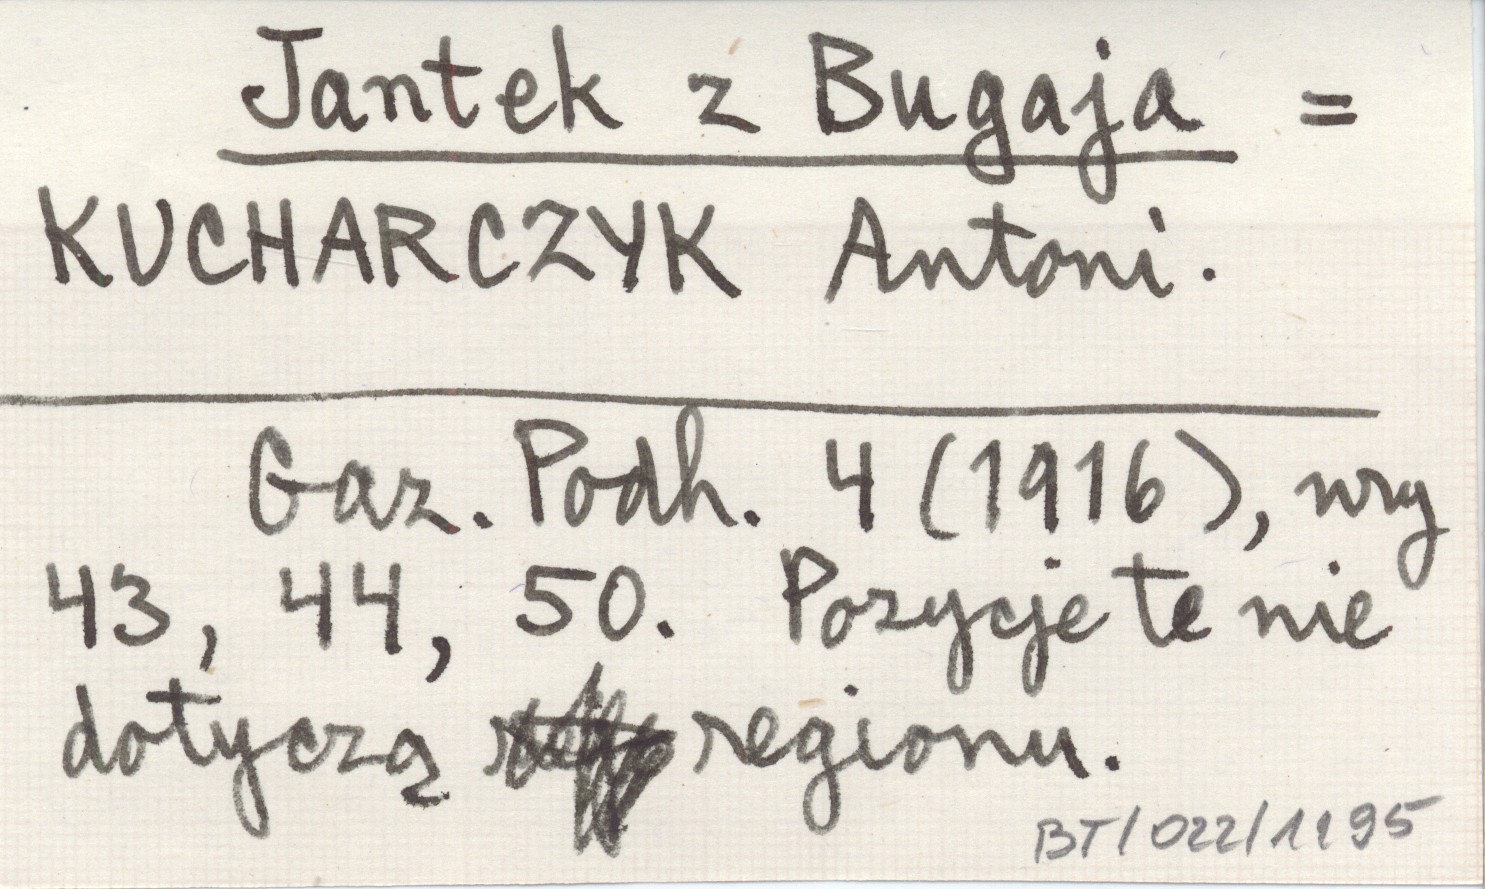 Jantek z Bugaja =
KUCHARCZYK Antoni.
Gaz. Podh. 4 (1916), nry
43, 44, 50. Pozycje te nie
dotyczą regionu.
BT/022/1195